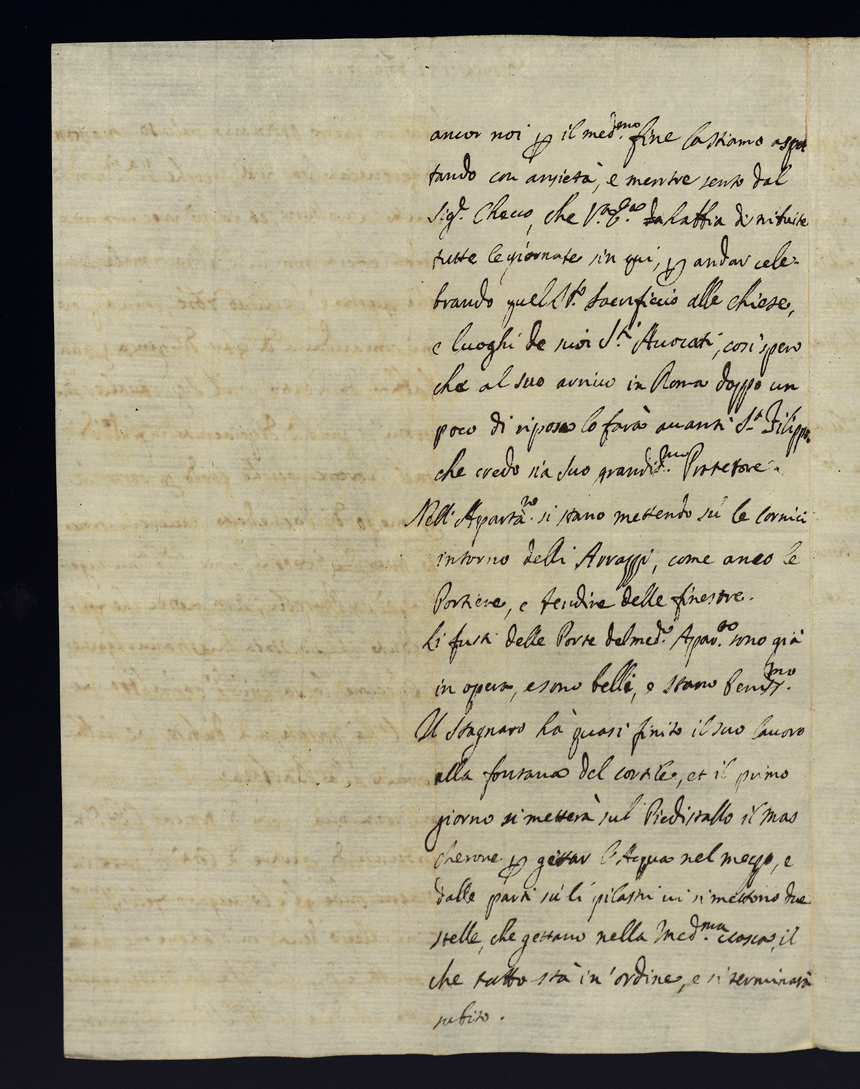 ancor noi ꝑ il med.mo fine la stiamo aspet
tando con ansietà, e mentre sento dal
Sig.r Checco, che V.a E.a habbia di
tutte le giornate sin qui, ꝑ andar cele-
brando quel S.to Sacrificio alle chiese,
e luoghi de suoi S.ti Auocati, così spero
che al suo arriuo in Roma doppo un
poco di riposo lo farà auanti S.t Filippo,
che credo sia suo grandis.mo Protetore.
Nell' Apartam.to si stano mettendo sù le Cornici
intorno delli Arrazzi, come anco le
Portiere, e tendine delle finestre.
Li fusti delle Porte del med.o Apar.to sono già
in opera, e sono belli, e stano beniss.mo
Il Stagnaro hà quasi finito il suo lauoro
alla fontana del cortile, et il primo
giorno si metterà sul Piedistallo il mas
cherone ꝑ gettar l'Acqua nel mezzo, e
dalle parti sù li pilastri ui si mettono due
stelle, che gettano nella Med.ma uasca, il
che tutto stà in' ordine, e si terminarà
subito.